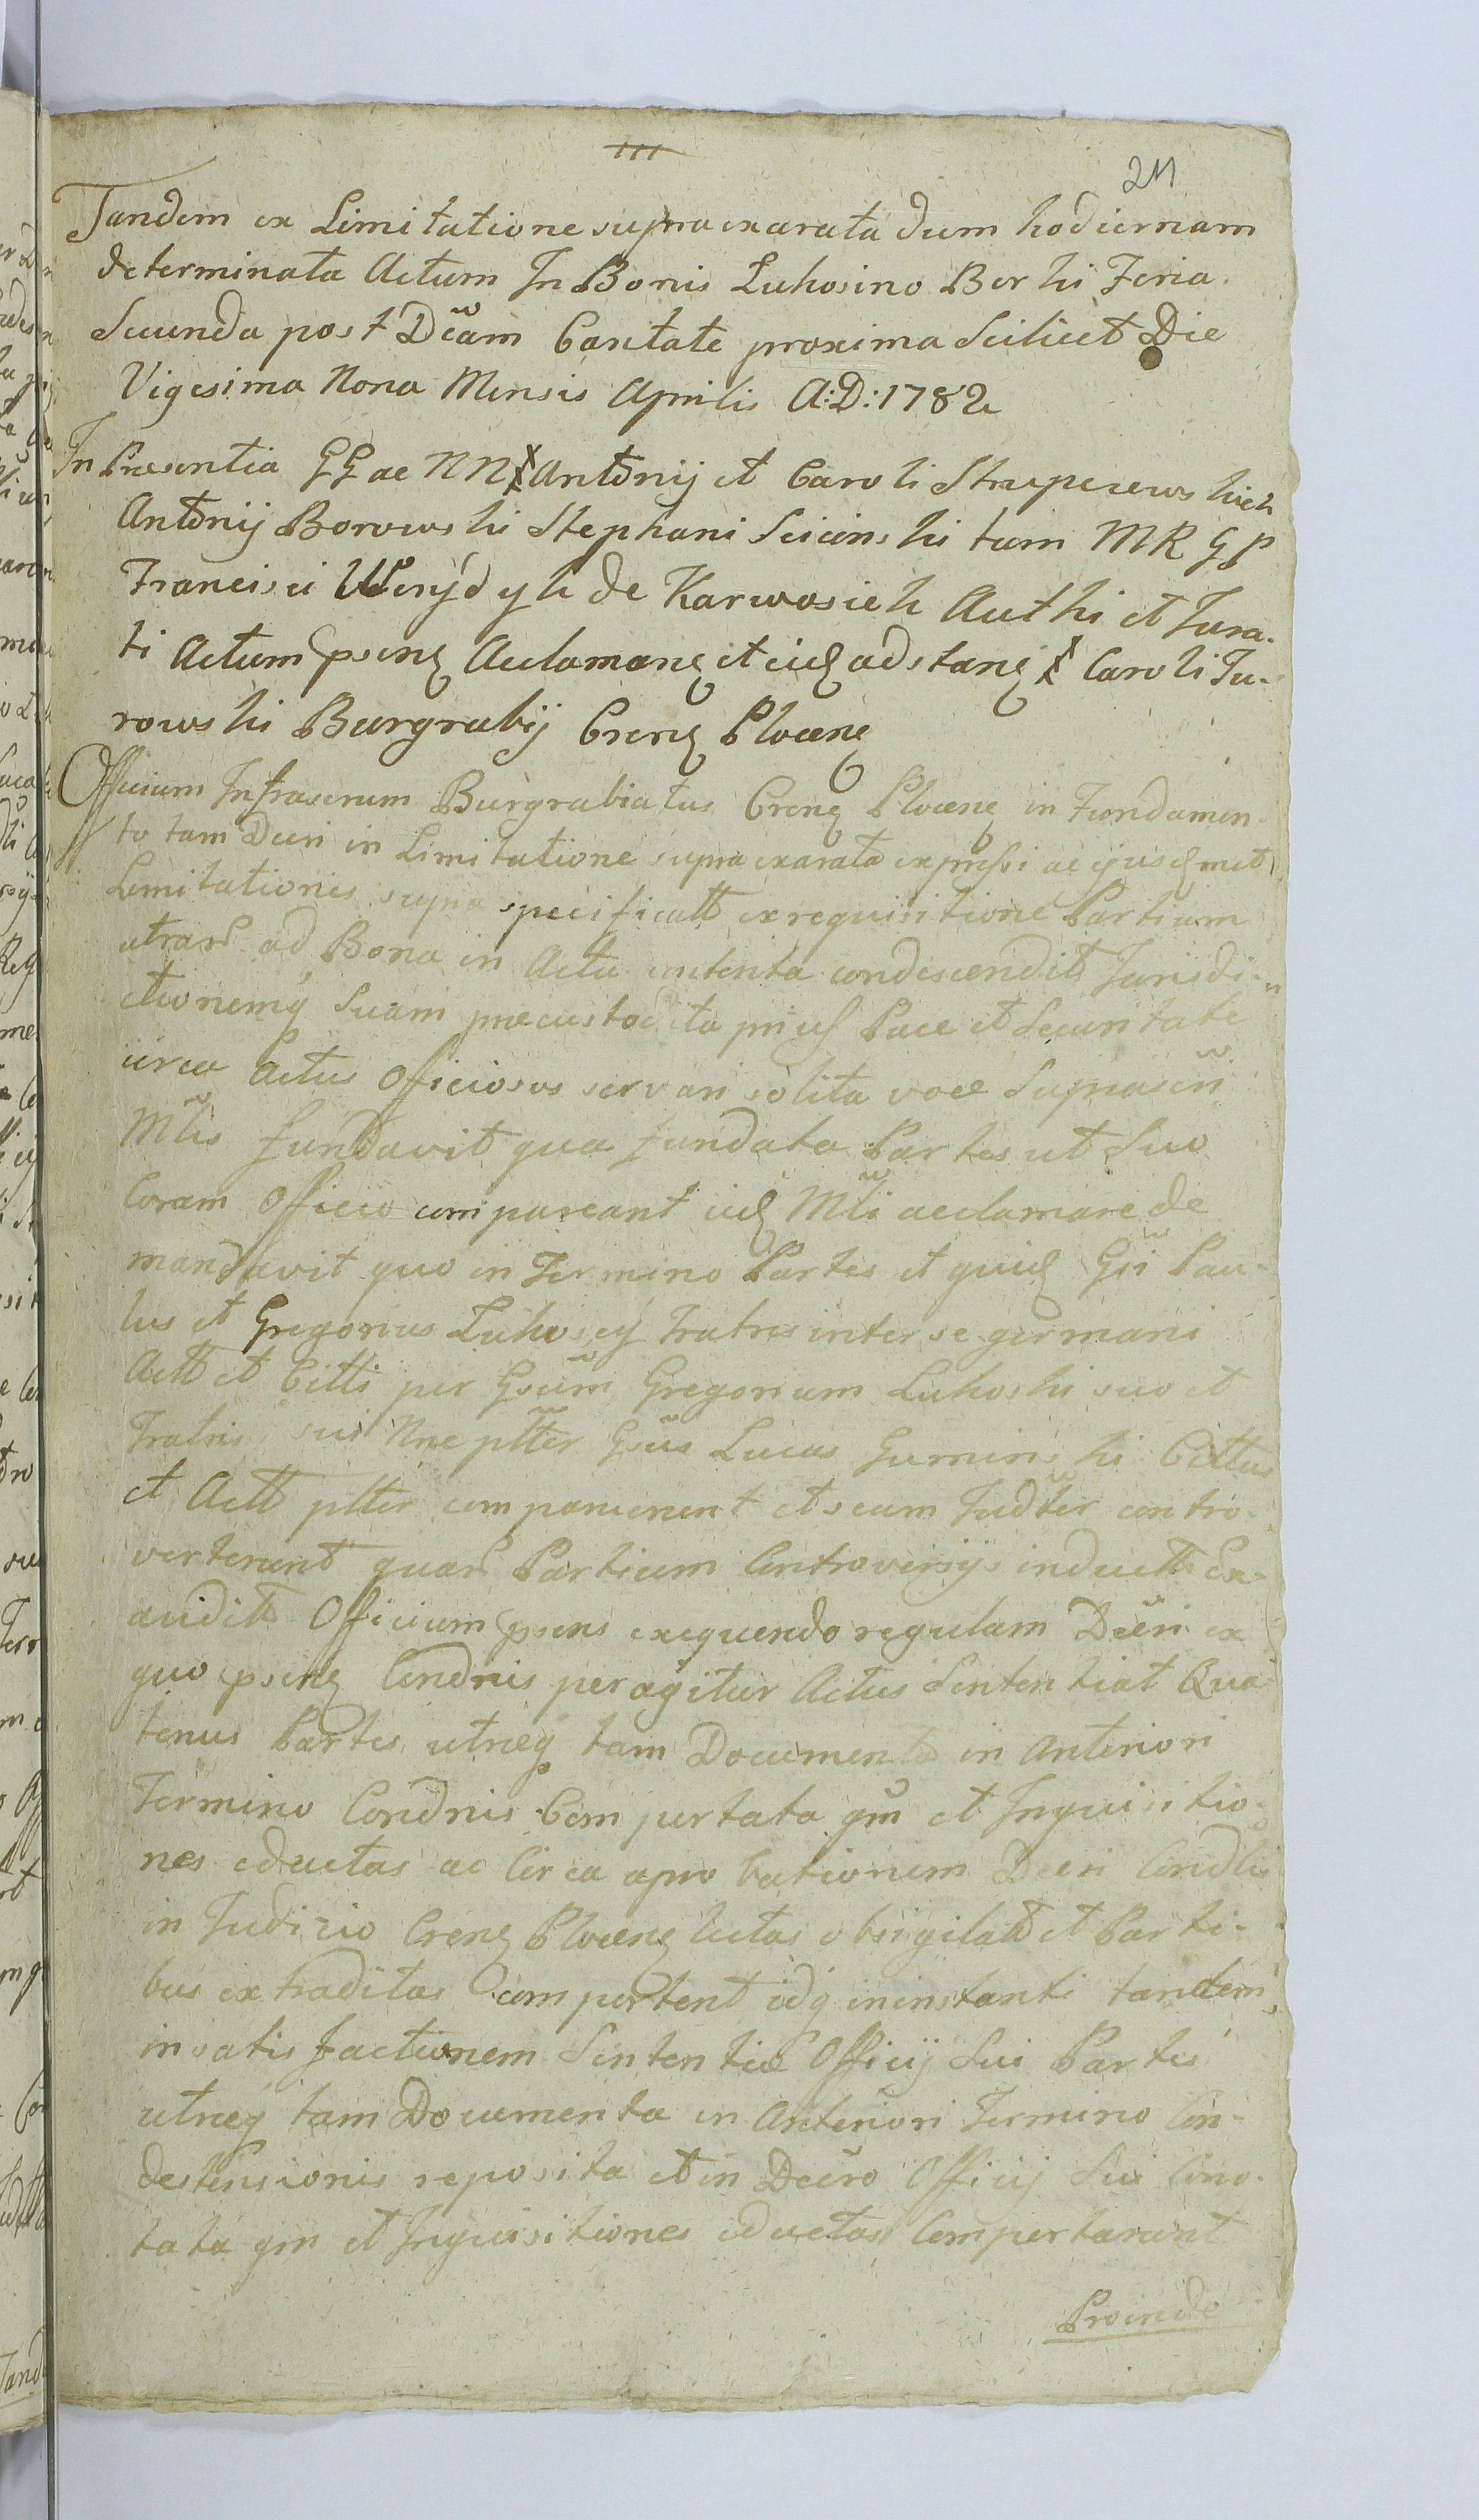 211
Tandem ex Limitatione supra exarata dum hodiernam
determinata Actum In Bonis Lukosino Borki Feria
Secunda post Dcam Cantate proxima Scilicet Die
Vigesima Nona Mensis Aprilis A:D:1782
In Praesentia GG ac NN Antonij et Caroli Strupczewskich
Antonij Borowski Stephani Sciciński tum MRGP
Francisci de Karwosiek Authi et Jura-
ti Actum psenq Acclamanq et eidq adstanq Caroli Tu-
rowski Burgrabij Crenq Plocenq
Officium Infrascrum Burgrabiatus Crenq Plocenq in Fundamen-
to tam Dccri in Limitatione supra exarata expressi ac ejusdmet
Limitationis supra specificatt ex requisitione Partium
utrarq ad Bona in Actu contenta condescendit Jurisdi-
ctionemq Suam praecustodita prius Pace et Securitate
circa Actus Officiosos servari solita voce Suprascri
Mlis fundavit qua fundata Partes ut Suo
Coram Officio compareant eidq Mli acclamare de
mandavit quo in Termino Partes et quidq Gsi Pau-
lus et Gregorius Lukoscy Fratres inter se germani
Actt et Citti per Gsum Gregorium Lukoski suo et
Fratris sui Nne pltter Gsus Lucas Guminski Cittus
et Actt pltter comparuerunt et secum Judlter contro-
verterunt quarq Partium Controversijs inductt Ex-
auditt Officium psens exequendo regulam Dccri ex
quo psenq Condnis peragitur Actus Sententiat Qua
tenus Partes utraeq tam Documenta in Anteriori
Termino Condnis Comportata qm et Inquisitio-
nes eductas ac Circa aprobationem Dccri Condlis
in Judicio Crenq Plocenq lectas obsigilatt et Parti-
bus extraditas comportent idq in instanti tandem
in satisfactionem Sententiae Officij Sui Partes
utraeq tam Documenta in Anteriori Termino Con-
destensionis reposita et in Dccro Officij Sui Cono-
tata qm et Inquisitiones eductas Comportarunt
Proinde